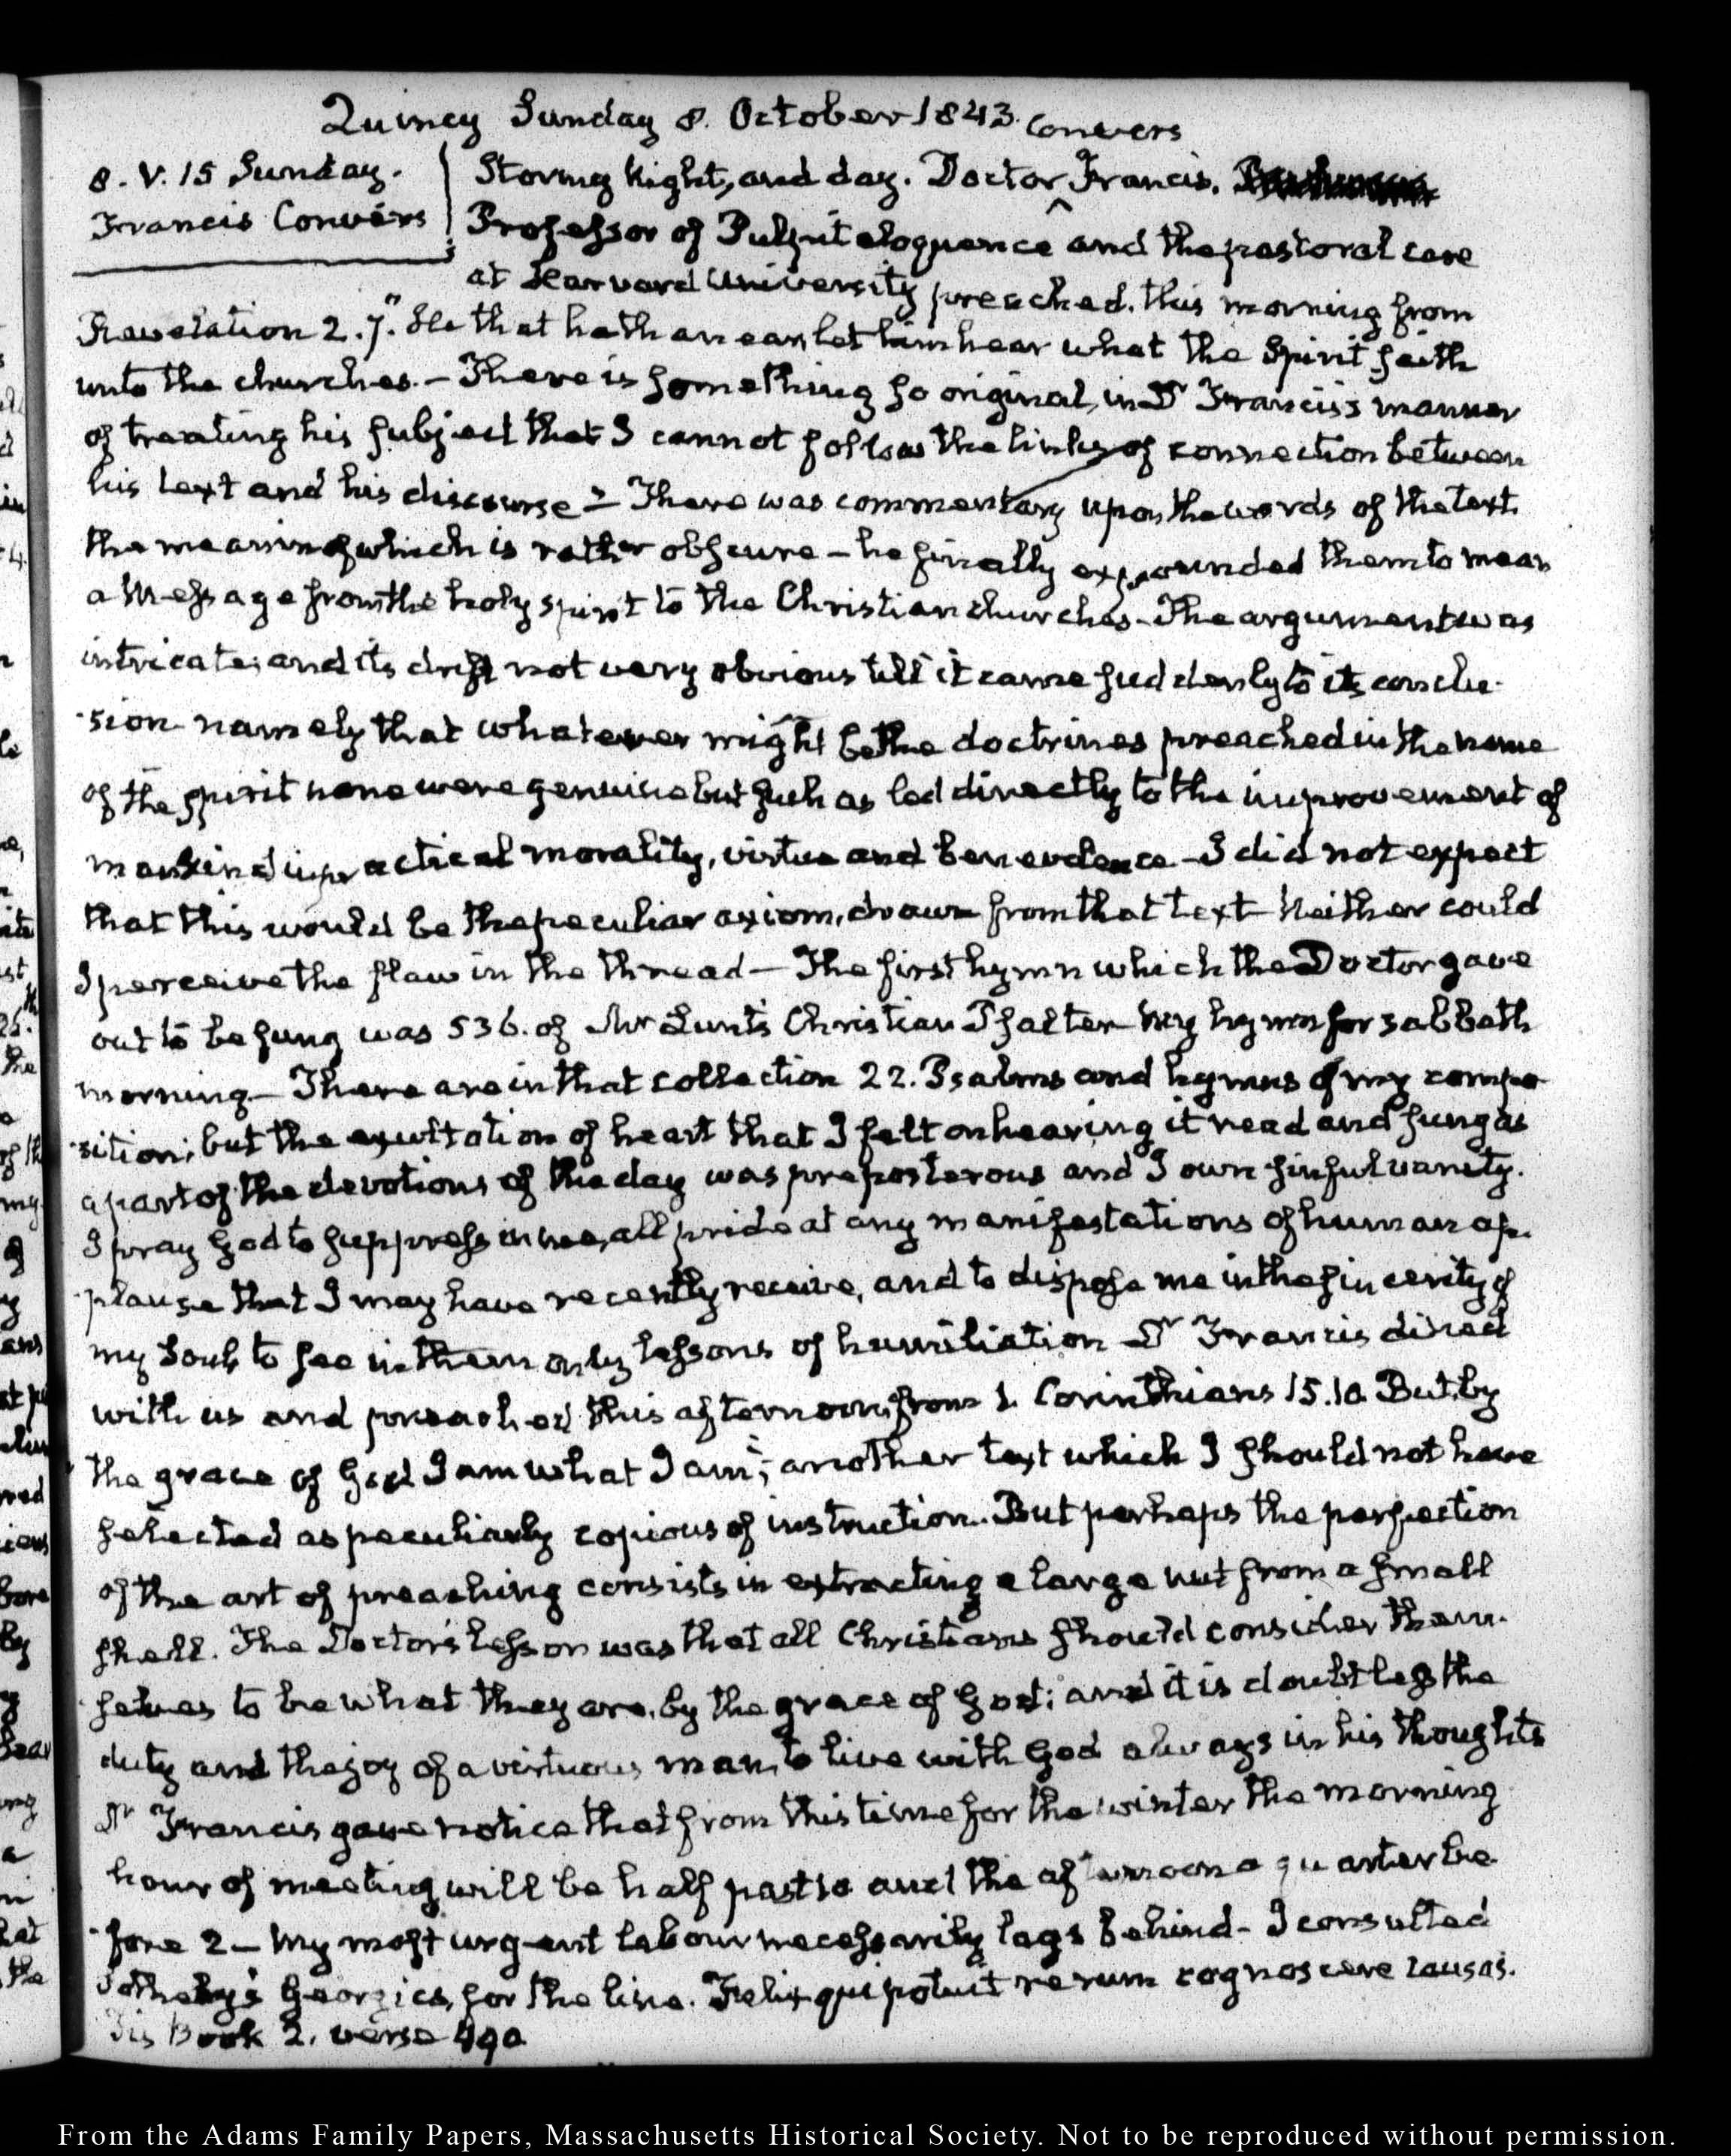 Quincy Sunday 8. October 1843.
Convers
8. V. 15 Sunday.
Francis Convers
Stormy Night, and day. Doctor ^ Francis.
Professor of Pulpit eloquence and the pastoral care
at Harvard University preached. this morning from
Revelation 2. 7. "He that hath an ear, let him hear what the Spirit saith
unto the churches. — There is something so original, in Dr Francis's manner
of treating his subject that I cannot follow the links of connection between
his text and his discourse — There was commentary upon the words of the text.
the meaning of which is rather obscure — he finally expounded them to mean
a Message from the holy spirit to the Christian churches. The argument was
intricate; and its drift not very obvious till it came suddenly to its conclu-
-sion namely that whatever might be the doctrines preached in the name
of the spirit none were genuine but such as led directly to the improvement of
mankind in practical morality, virtue and benevolence — I did not expect
that this would be the peculiar axiom, drawn from that text Neither could
I perceive the flaw in the thread — The first hymn which the Doctor gave
out to be sung was 536. of Mr Lunt's Christian Psalter my hymn for sabbath
morning — There are in that collection 22. Psalms and hymns of my compo-
-sition; but the exultation of heart that I felt on hearing it read and sung as
a part of the devotions of the day was preposterous and I own sinful vanity.
I pray God to suppress in me, all pride at any manifestations of human ap-
-plause that I may have recently receive, and to dispose me in the sincerity of
my Soul, to see in them only lessons of humiliation Dr Francis dined
with us and preached this afternoon, from 1. Corinthians 15. 10. But, by
the grace of God I am what I am; another text which I should not have
selected as peculiarly copious of instruction. But perhaps the perfection
of the art of preaching consists in extracting a large nut from a small
shell. The Doctor's lesson was that all Christians should consider them-
selves to be what they are, by the grace of God; and it is doubtless the
duty and the joy of a virtuous man, to live with God always in his thoughts
Dr Francis gave notice that from this time for the winter the morning
hour of meeting will be half past 10 and the afternoon a quarter be-
-fore 2 — My most urgent labour necessarily lags behind — I consulted
Sotheby's Georgics, for the line. Felix qui potuit rerum cognoscere causas.
Tis Book 2. verse 490
From the Adams Family Papers, Massachusetts Historical Society. Not to be reproduced without permission.